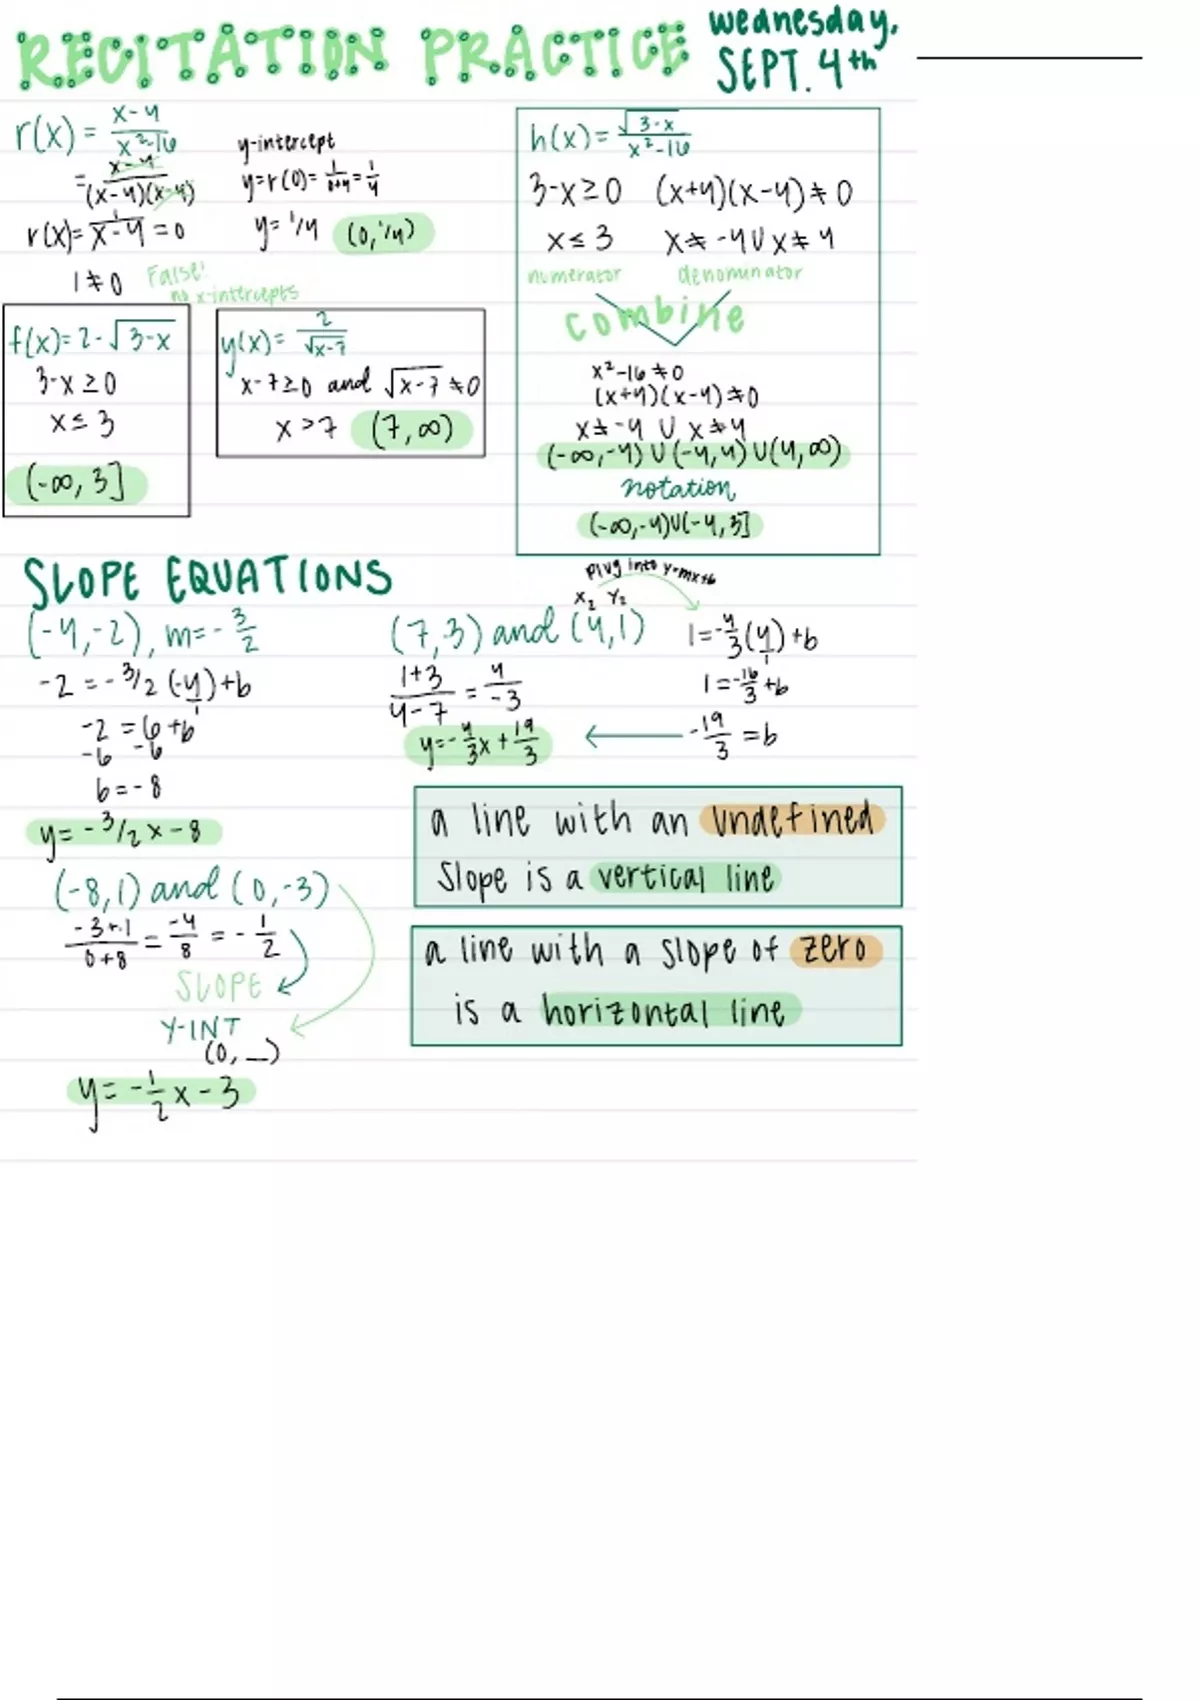 RECITATION PRACTICE
Wednesday, SEPT. 4th
r(x) = x-4 / x²-16
= x-4 / (x-4)(x-4)
r(x) = 1 / x-4 = 0
1 ≠ 0 False!
no x-intercepts
y-intercept
y=r(0)= 1/0+4 = 1/4
y= 1/4 (0, 1/4)
f(x)=2-√3-x
3-x≥0
x≤3
(-∞, 3]
y(x)= 2/√x-7
x-7≥0 and √x-7 ≠0
x>7 (7,∞)
h(x)= √3-x / x²-16
3-x≥0 (x+4)(x-4)≠0
x≤3 x≠-4 U x≠4
numerator denominator
combine
x²-16≠0
(x+4)(x-4)≠0
x≠-4 U x≠4
(-∞,-4)U(-4,4)U(4,∞)
notation
(-∞,-4)U(-4,3]
SLOPE EQUATIONS
(-4,-2), m=-3/2
-2=-3/2(-4)+b
-2=6+b
-6 -6
b=-8
y=-3/2x-8
(-8,1) and (0,-3)
-3+-1 / 0+8 = -4/8 = -1/2
SLOPE
Y-INT
(0, _)
y=-1/2x-3
Plug into y=mx+b
X₂ Y₂
(7,3) and (4,1)
1+3 / 4-7 = 4/-3
1=-4/3(4)+b
1=-16/3+b
-19/3=b
y=-4/3x+19/3
a line with an undefined
slope is a vertical line
a line with a slope of zero
is a horizontal line